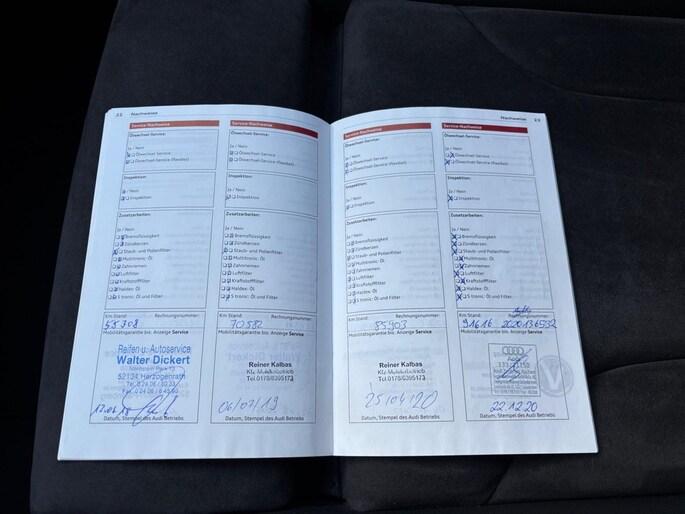 Nachweise
Service-Nachweise
Ölwechsel-Service:
Ja / Nein
Ölwechsel-Service
Ölwechsel-Service (flexibel)
Inspektion:
Ja / Nein
Inspektion
Zusatzarbeiten:
Ja / Nein
Bremsflüssigkeit
Zündkerzen
Staub- und Pollenfilter
Multitronic Öl
Zahnriemen
Luftfilter
Kraftstofffilter
Haldex Öl
S tronic: Öl und Filter
Km Stand: Rechnungsnummer:
Mobilitätsgarantie bis: Anzeige Service
Reifen u. Autoservice
Walter Dickert
52134 Herzogenrath
Datum, Stempel des Audi Betriebs
Service-Nachweise
Ölwechsel-Service:
Ja / Nein
Ölwechsel-Service
Ölwechsel-Service (flexibel)
Inspektion:
Ja / Nein
Inspektion
Zusatzarbeiten:
Ja / Nein
Bremsflüssigkeit
Zündkerzen
Staub- und Pollenfilter
Multitronic: Öl
Zahnriemen
Luftfilter
Kraftstofffilter
Haldex: Öl
S tronic: Öl und Filter
Km Stand: Rechnungsnummer:
70582
Mobilitätsgarantie bis: Anzeige Service
Reiner Kalbas
Tel.0178/6395173
06/07/19
Datum, Stempel des Audi Betriebs
Nachweise
Service-Nachweise
Ölwechsel-Service:
Ja / Nein
Ölwechsel-Service
Ölwechsel-Service (flexibel)
Inspektion:
Ja / Nein
Inspektion
Zusatzarbeiten:
Ja / Nein
Bremsflüssigkeit
Zündkerzen
Staub- und Pollenfilter
Multitronic: Öl
Zahnriemen
Luftfilter
Kraftstofffilter
Haldex: Öl
S tronic: Öl und Filter
Km Stand: Rechnungsnummer:
85903
Mobilitätsgarantie bis: Anzeige Service
Reiner Kalbas
Tel.0178/6395173
25/04/20
Datum, Stempel des Audi Betriebs
Service-Nachweise
Ölwechsel-Service:
Ja / Nein
Ölwechsel-Service
Ölwechsel-Service (flexibel)
Inspektion:
Ja / Nein
Inspektion
Zusatzarbeiten:
Ja / Nein
Bremsflüssigkeit
Zündkerzen
Staub- und Pollenfilter
Multitronic: Öl
Zahnriemen
Luftfilter
Kraftstofffilter
Haldex: Öl
S tronic: Öl und Filter
Km Stand: Rechnungsnummer:
91616
Mobilitätsgarantie bis: Anzeige Service
Audi
22.12.20
Datum, Stempel des Audi Betriebs